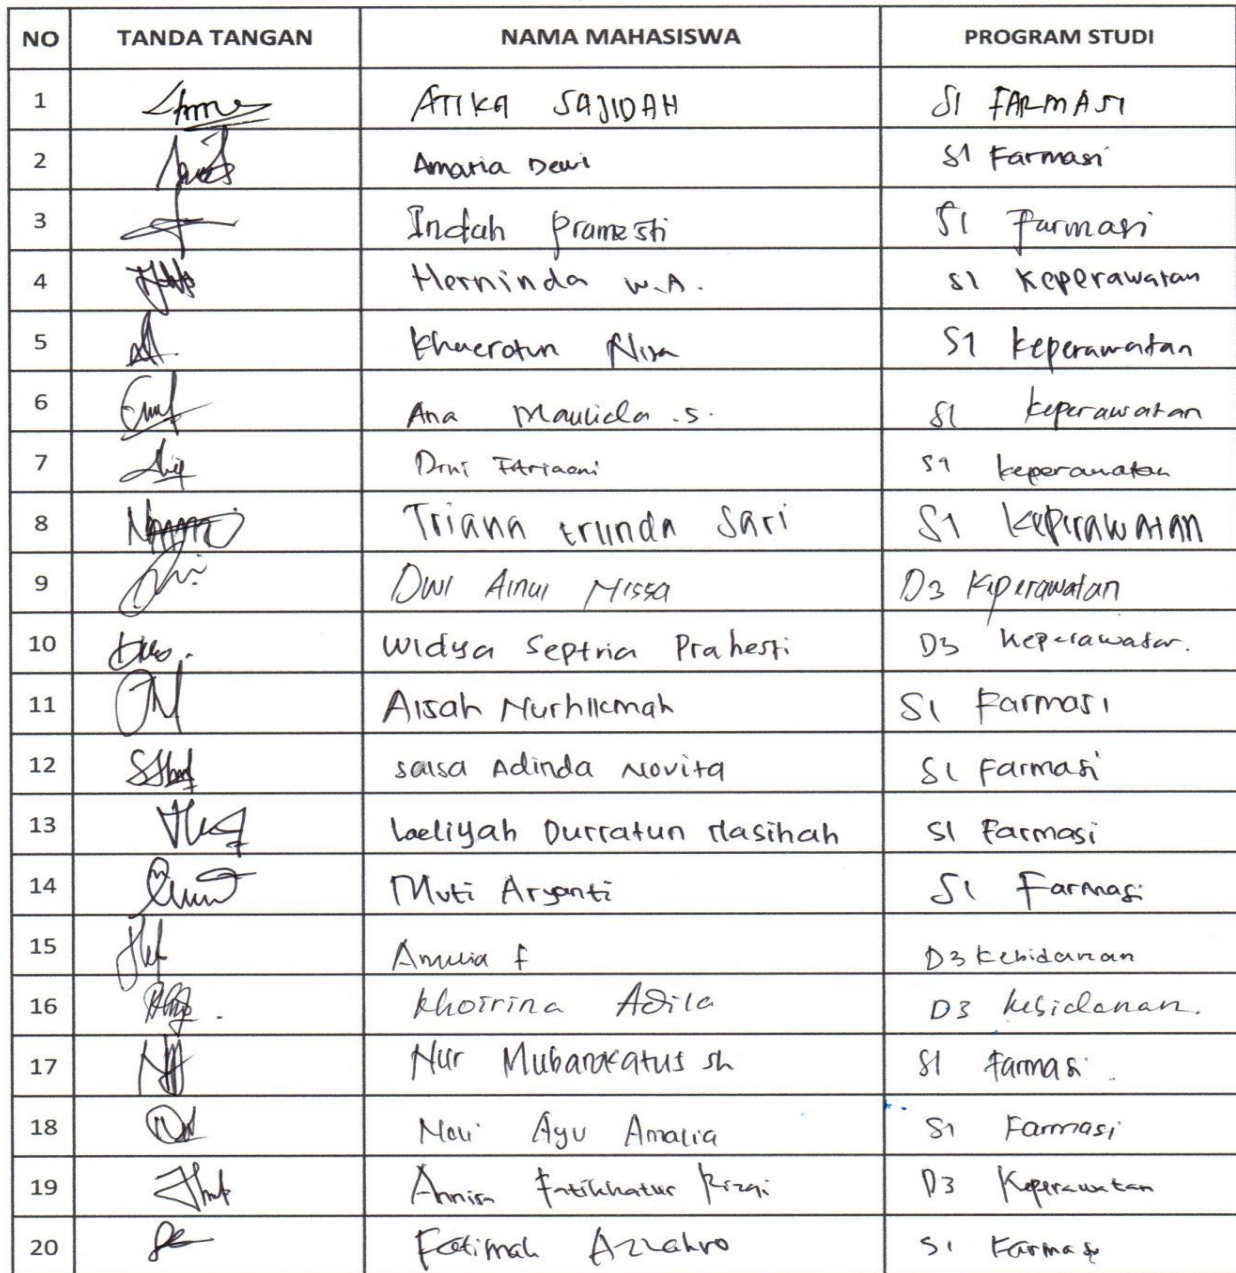 NO TANDA TANGAN NAMA MAHASISWA PROGRAM STUDI
1 ATIKA SAJIDAH S1 FARMASI
2 Amaria Dewi S1 Farmasi
3 Indah Pramesti S1 Farmasi
4 Herninda W.A. S1 Keperawatan
5 Khaerotun Nisa S1 Keperawatan
6 Ana Maulida .S. S1 keperawatan
7 Fitriaeni S1 keperawatan
8 Triana trunda Sari S1 Keperawatan
9 Dwi Ainui Nissa D3 Keperawatan
10 Widya Septria Prahesti D3 Keperawatan.
11 Aisah Nurhikmah S1 Farmasi
12 salsa Adinda Novita S1 Farmasi
13 Laeliyah Durratun Nasihah S1 Farmasi
14 Muti Aryanti S1 Farmasi
15 Amelia f D3 Kebidanan
16 Khoirina Adila D3 Kebidanan.
17 Nur Mubarokatus sh S1 Farmasi.
18 Novi Ayu Amalia S1 Farmasi
19 Annisa Fatikhatur Rizqi D3 Keperawatan
20 Fatimah Azzahro S1 Farmasi